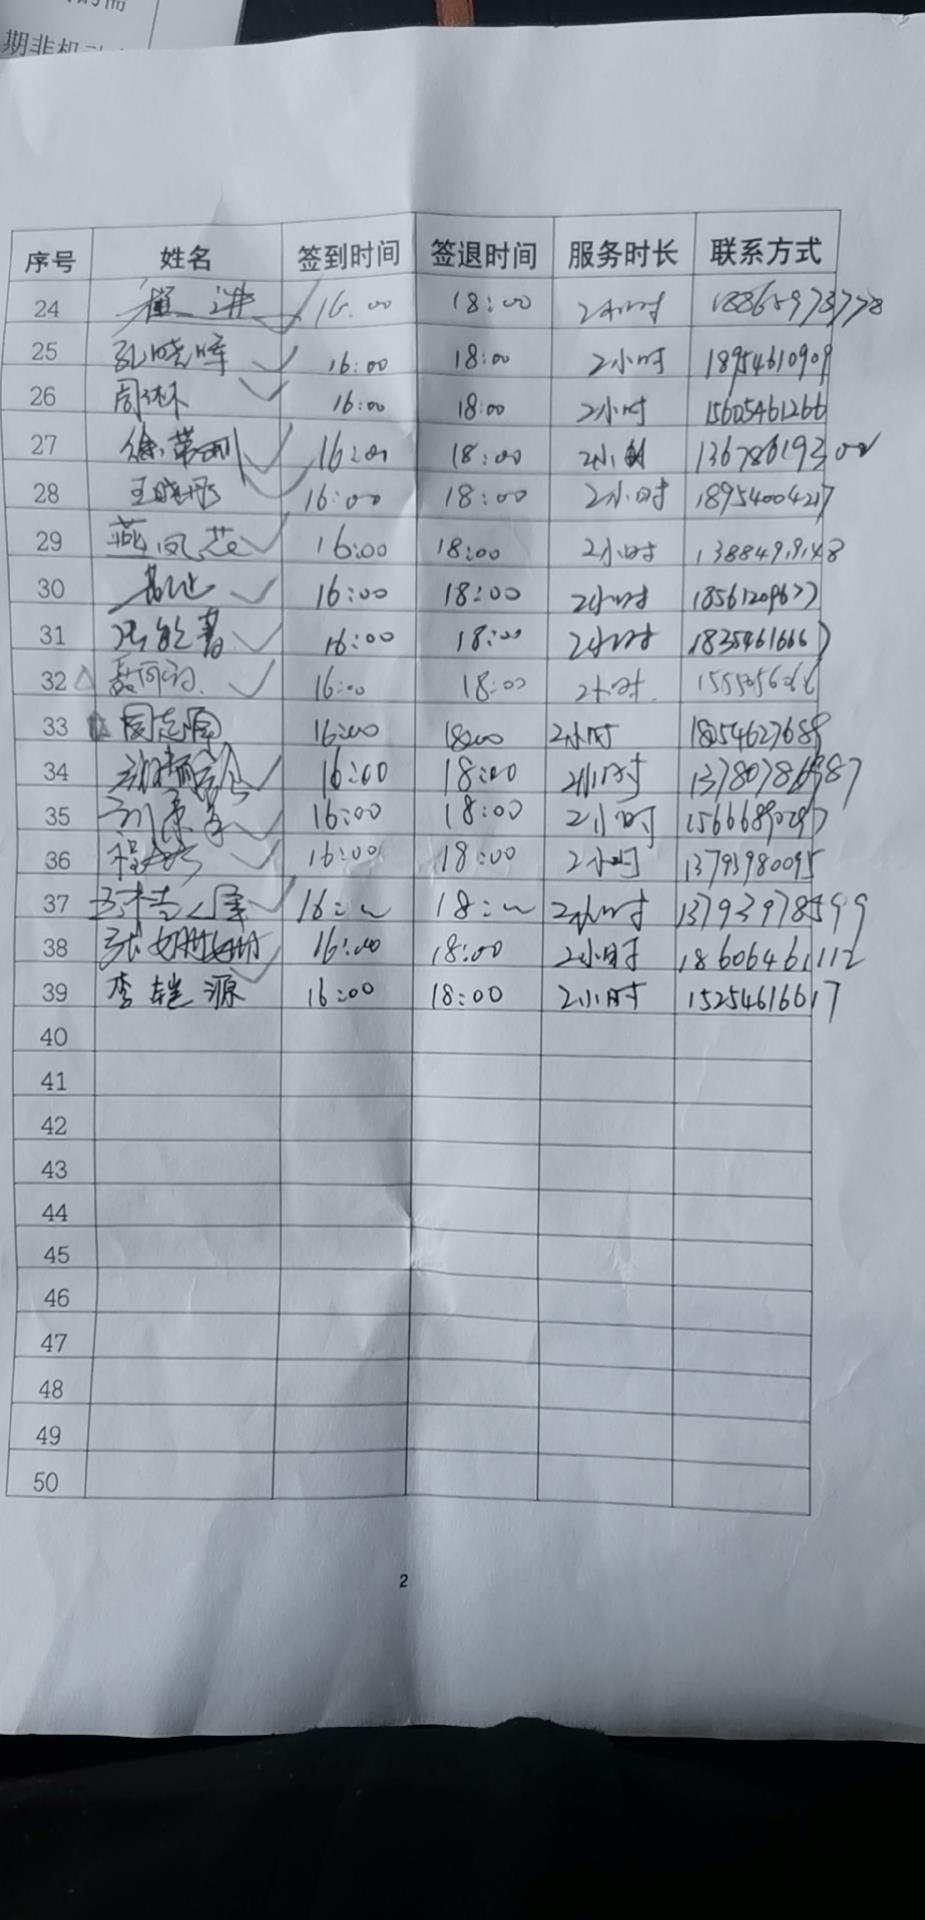 期非机
序号 姓名 签到时间 签退时间 服务时长 联系方式
24 16:00 18:00 2小时 18865973778
25 孔晓晖 16:00 18:00 2小时 18954610909
26 周林 16:00 18:00 2小时 15605461266
27 16:00 18:00 2小时 13678619300
28 王晓彤 16:00 18:00 2小时 18954004217
29 燕凤芝 16:00 18:00 2小时
30 16:00 18:00 2小时 18561209677
31 16:00 18:00 2小时 18354616667
32 16:00 18:00 2小时
33 周志国 16:00 18:00 2小时 18254627689
34 16:00 18:00 2小时
35 16:00 18:00 2小时
36 16:00 18:00 2小时 13793980095
37 16:00 18:00 2小时 13793978599
38 张姗姗 16:00 18:00 2小时 18606461112
39 李铠源 16:00 18:00 2小时 15254616617
40
41
42
43
44
45
46
47
48
49
50
2